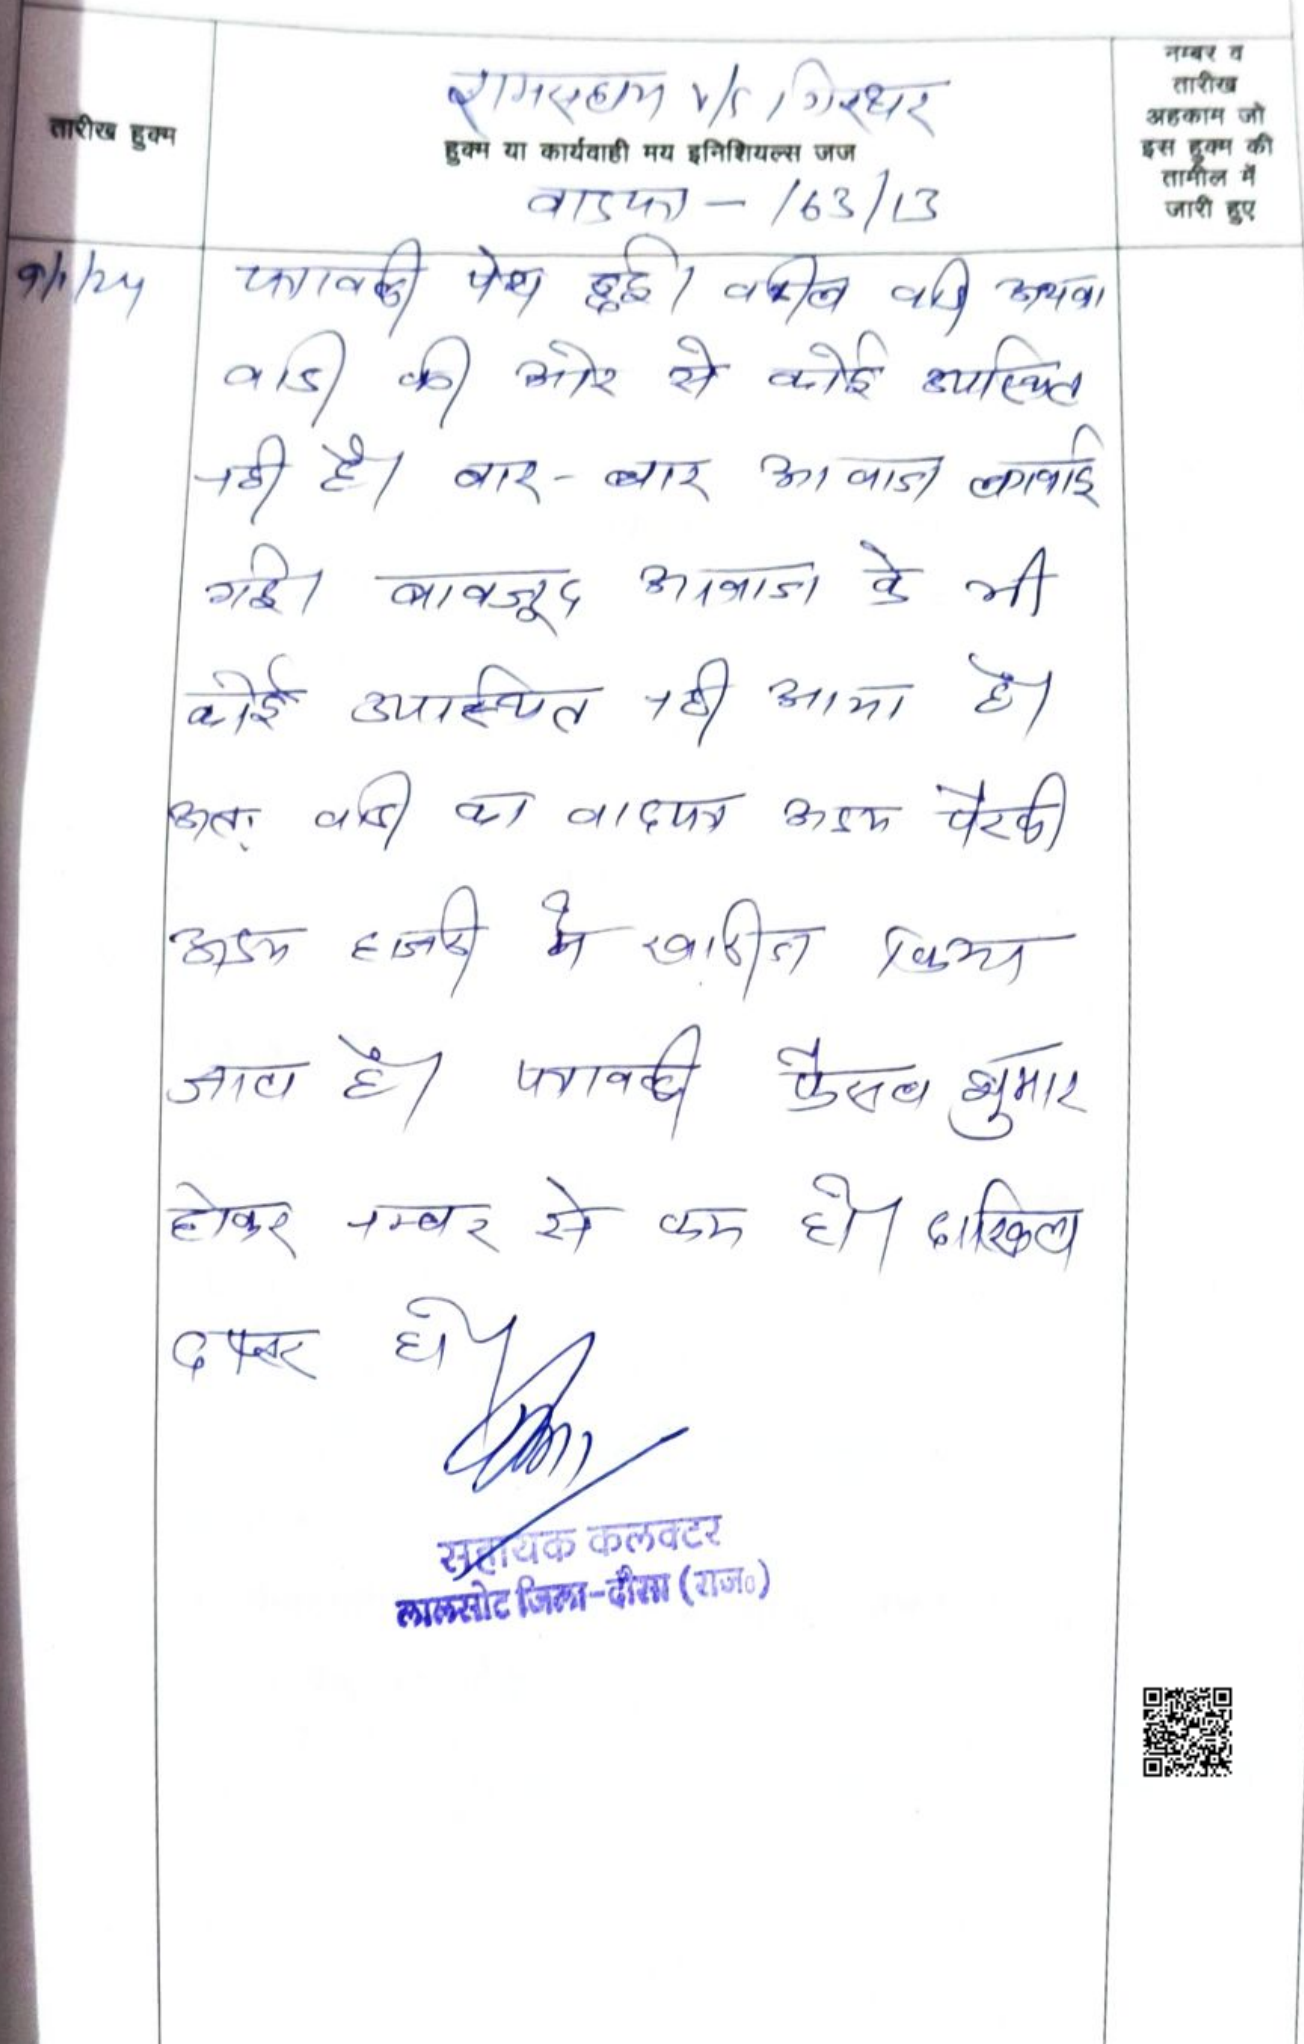 तारीख हुक्म
रामसहाय v/s गिरधर
हुक्म या कार्यवाही मय इनिशियल्स जज
163/13
नम्बर व
तारीख
अहकाम जो
इस हुक्म की
तामील में
जारी हुए
9/1/24
पत्रावली पेश हुई। वकील वादी अथवा
वादी की ओर से कोई उपस्थित
नही है। बार-बार आवाज लगवाई
गई। बावजूद आवाज के भी
कोई उपस्थित नही आया है।
अतः वादी का वादपत्र अदम पैरवी
अदम हाजरी मे खारीज किया
जाता है। पत्रावली फैसल शुमार
होकर नम्बर से कम हो। दाखिल
दफ्तर हो।
सहायक कलक्टर
लालसोट जिला-दौसा (राज०)